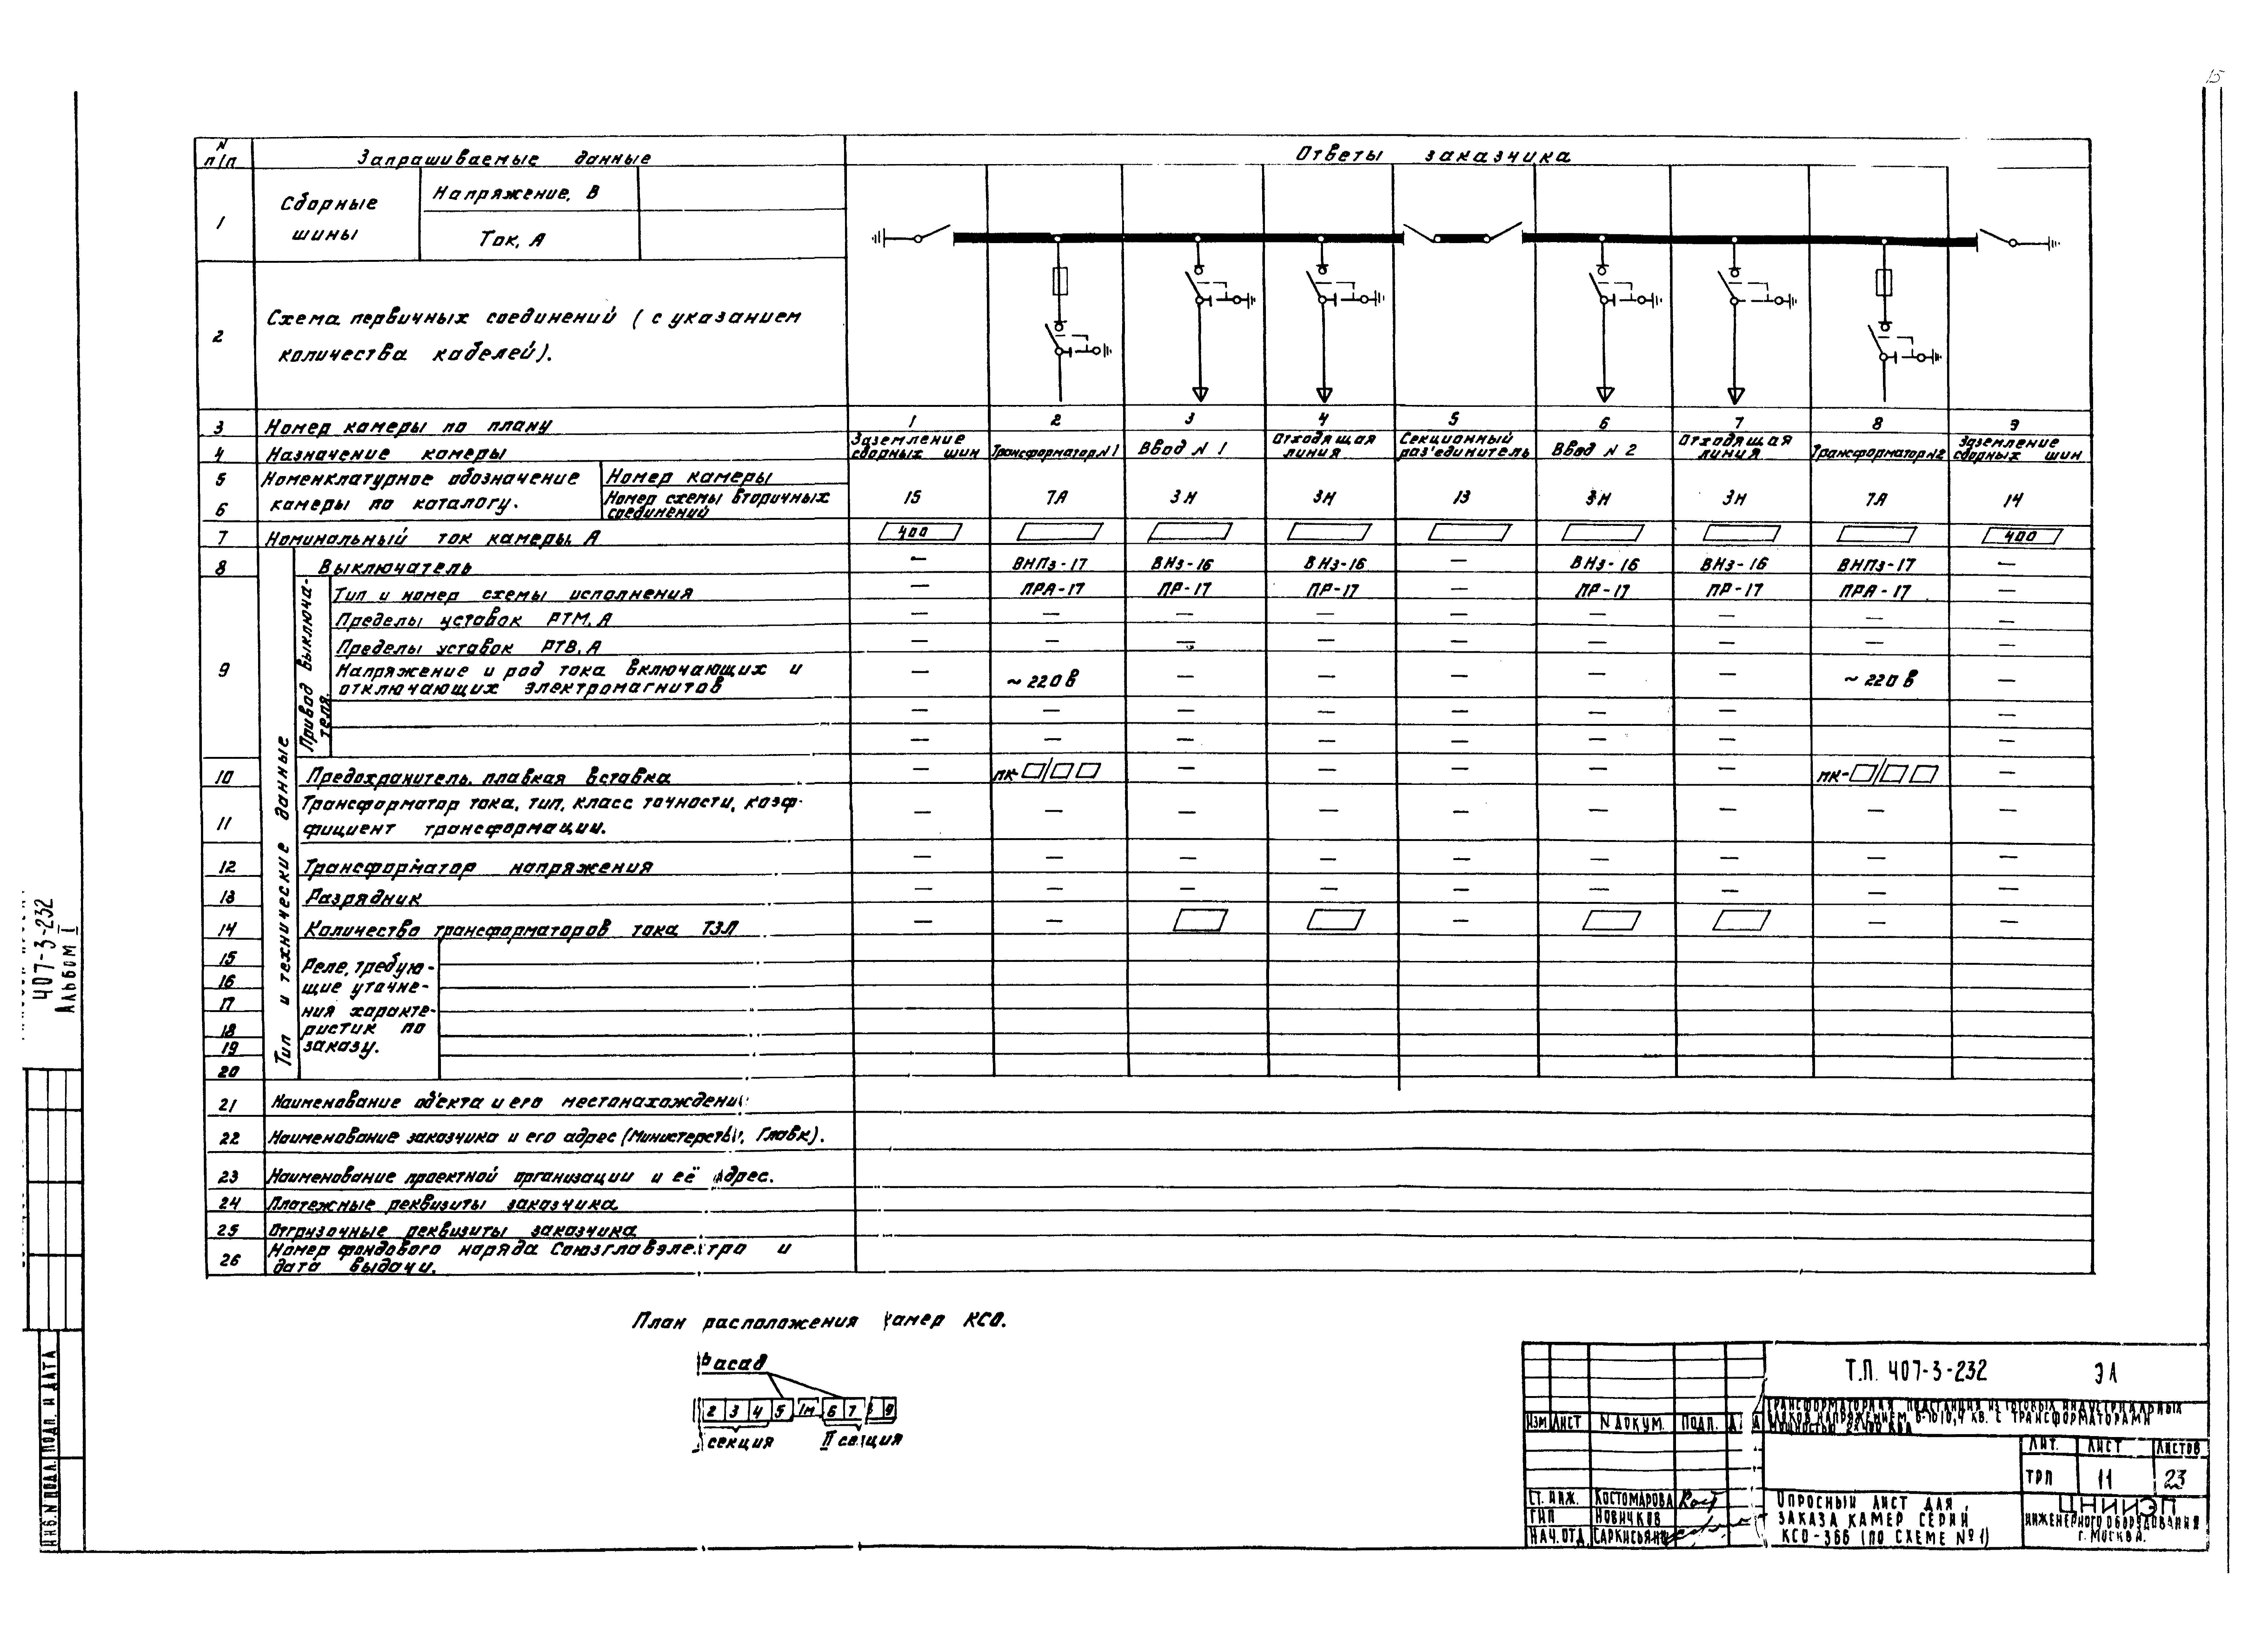 15
N п/п
Запрашиваемые данные
Ответы заказчика
1
Сборные шины
Напряжение, В
Ток, А
2
Схема первичных соединений (с указанием
количества кабелей).
3 Номер камеры по плану 1 2 3 4 5 6 7 8 9
4 Назначение камеры
Заземление сборных шин
Трансформатор N1
Ввод N 1
Отходящая линия
Секционный раз'единитель
Ввод N 2
Отходящая линия
Трансформатор N2
Заземление сборных шин
5
6
Номенклатурное обозначение
камеры по каталогу.
Номер камеры
Номер схемы вторичных
соединений
15 7А 3Н 3Н 13 3Н 3Н 7А 14
7 Номинальный ток камеры, А 400 400
8 Выключатель — ВНПз-17 ВНз-16 ВНз-16 — ВНз-16 ВНз-16 ВНПз-17 —
9
Привод выключателя.
Тип и номер схемы исполнения — ПРА-17 ПР-17 ПР-17 — ПР-17 ПР-17 ПРА-17 —
Пределы уставок РТМ, А — — — — — — — — —
Пределы уставок РТВ, А — — — — — — — — —
Напряжение и род тока включающих и
отключающих электромагнитов
— ~220В — — — — — ~220В —
— — — — — — — — —
— — — — — — — — —
Тип и технические данные
10 Предохранитель, плавкая вставка — ПК- / — — — — — ПК- / —
11
Трансформатор тока, тип, класс точности, коэф-
фициент трансформации.
— — — — — — — — —
12 Трансформатор напряжения — — — — — — — — —
13 Разрядник — — — — — — — — —
14 Количество трансформаторов тока ТЗЛ — — — — —
15
16
17
18
19
20
Реле, требую-
щие уточне-
ния характе-
ристик по
заказу.
21 Наименование об'екта и его местонахождени
22 Наименование заказчика и его адрес (Министерство, Главк).
23 Наименование проектной организации и её адрес.
24 Платежные реквизиты заказчика
25 Отгрузочные реквизиты заказчика
26 Номер фондового наряда Союзглавэлектро и
дата выдачи.
План расположения камер КСО.
Фасад
2 3 4 5 1м 6 7 8 9
I секция
II секция
407-3-232
Альбом I
ИНВ.N ПОДЛ. ПОДП. И ДАТА
Т.П. 407-3-232 ЭА
ТРАНСФОРМАТОРНАЯ ПОДСТАНЦИЯ ИЗ ГОТОВЫХ ИНДУСТРИАЛЬНЫХ
БЛОКОВ НАПРЯЖЕНИЕМ 6-10/0,4 КВ. С ТРАНСФОРМАТОРАМИ
МОЩНОСТЬЮ 2×400 КВА
ИЗМ ЛИСТ N ДОКУМ. ПОДП. ДАТА
ЛИТ. ЛИСТ ЛИСТОВ
ТРП 11 23
СТ. ИНЖ. КОСТОМАРОВА
ГИП НОВИЧКОВ
НАЧ. ОТД. САРКИСЬЯНЦ
ОПРОСНЫЙ ЛИСТ ДЛЯ
ЗАКАЗА КАМЕР СЕРИИ
КСО-366 (ПО СХЕМЕ №1)
ЦНИИЭП
ИНЖЕНЕРНОГО ОБОРУДОВАНИЯ
Г. МОСКВА.